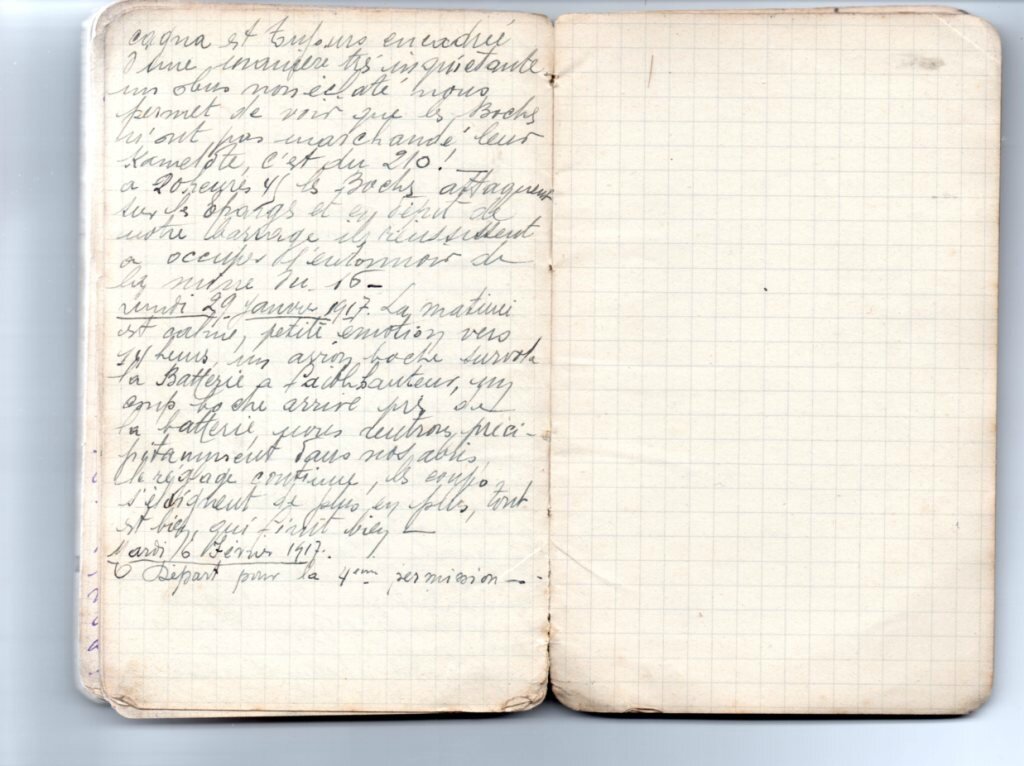 cagna est toujours encadrée
d'une manière très inquiétante.
un obus non éclaté nous
permet de voir que les Bochs
n'ont pas marchandé leur
Kamelote, c'est du 210!
a 20 heures 45 les Bochs attaquent
sur les et en dépit de
notre barrage ils réussissent
a occuper l'entonnoir de
la mine du 16 –
Lundi 29 Janvier 1917. La matinée
est calme, petite émotion vers
14 heures un avion boche survole
la Batterie a faible hauteur, un
coup boche arrive près de
la batterie, nous rentrons préci-
pitamment dans nos abris
le réglage continue, les coups
s'éloignent de plus en plus, tout
est bien, qui finit bien –
Mardi 6 Février 1917.
Départ pour la 4eme permission –